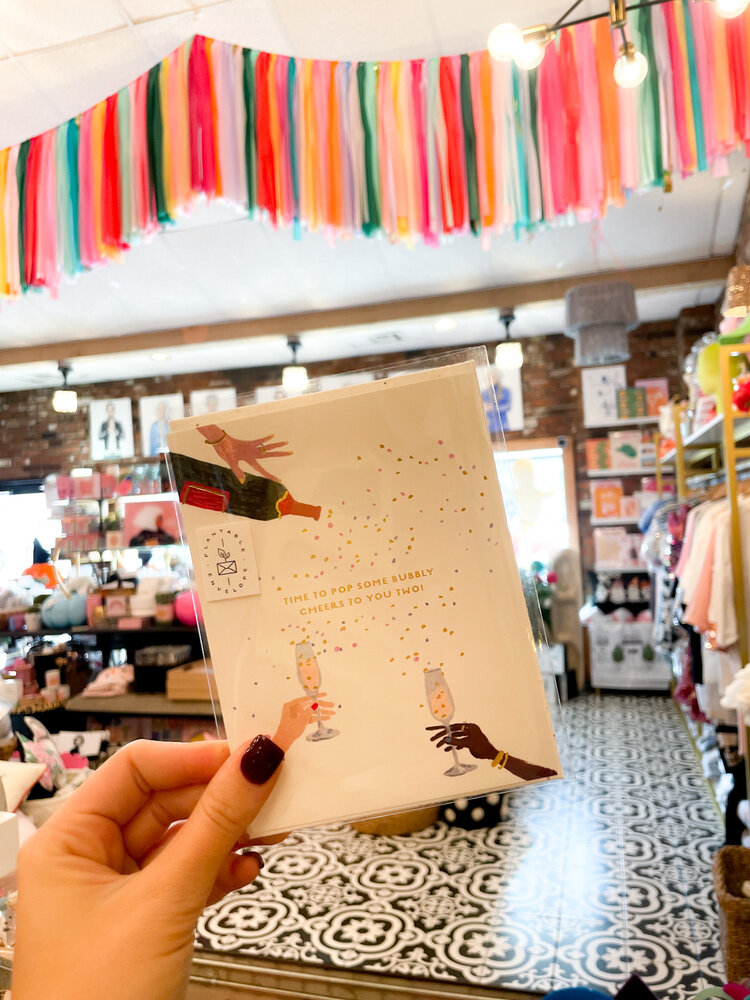 PLANTABLE
ENVELOPE
TIME TO POP SOME BUBBLY
CHEERS TO YOU TWO!